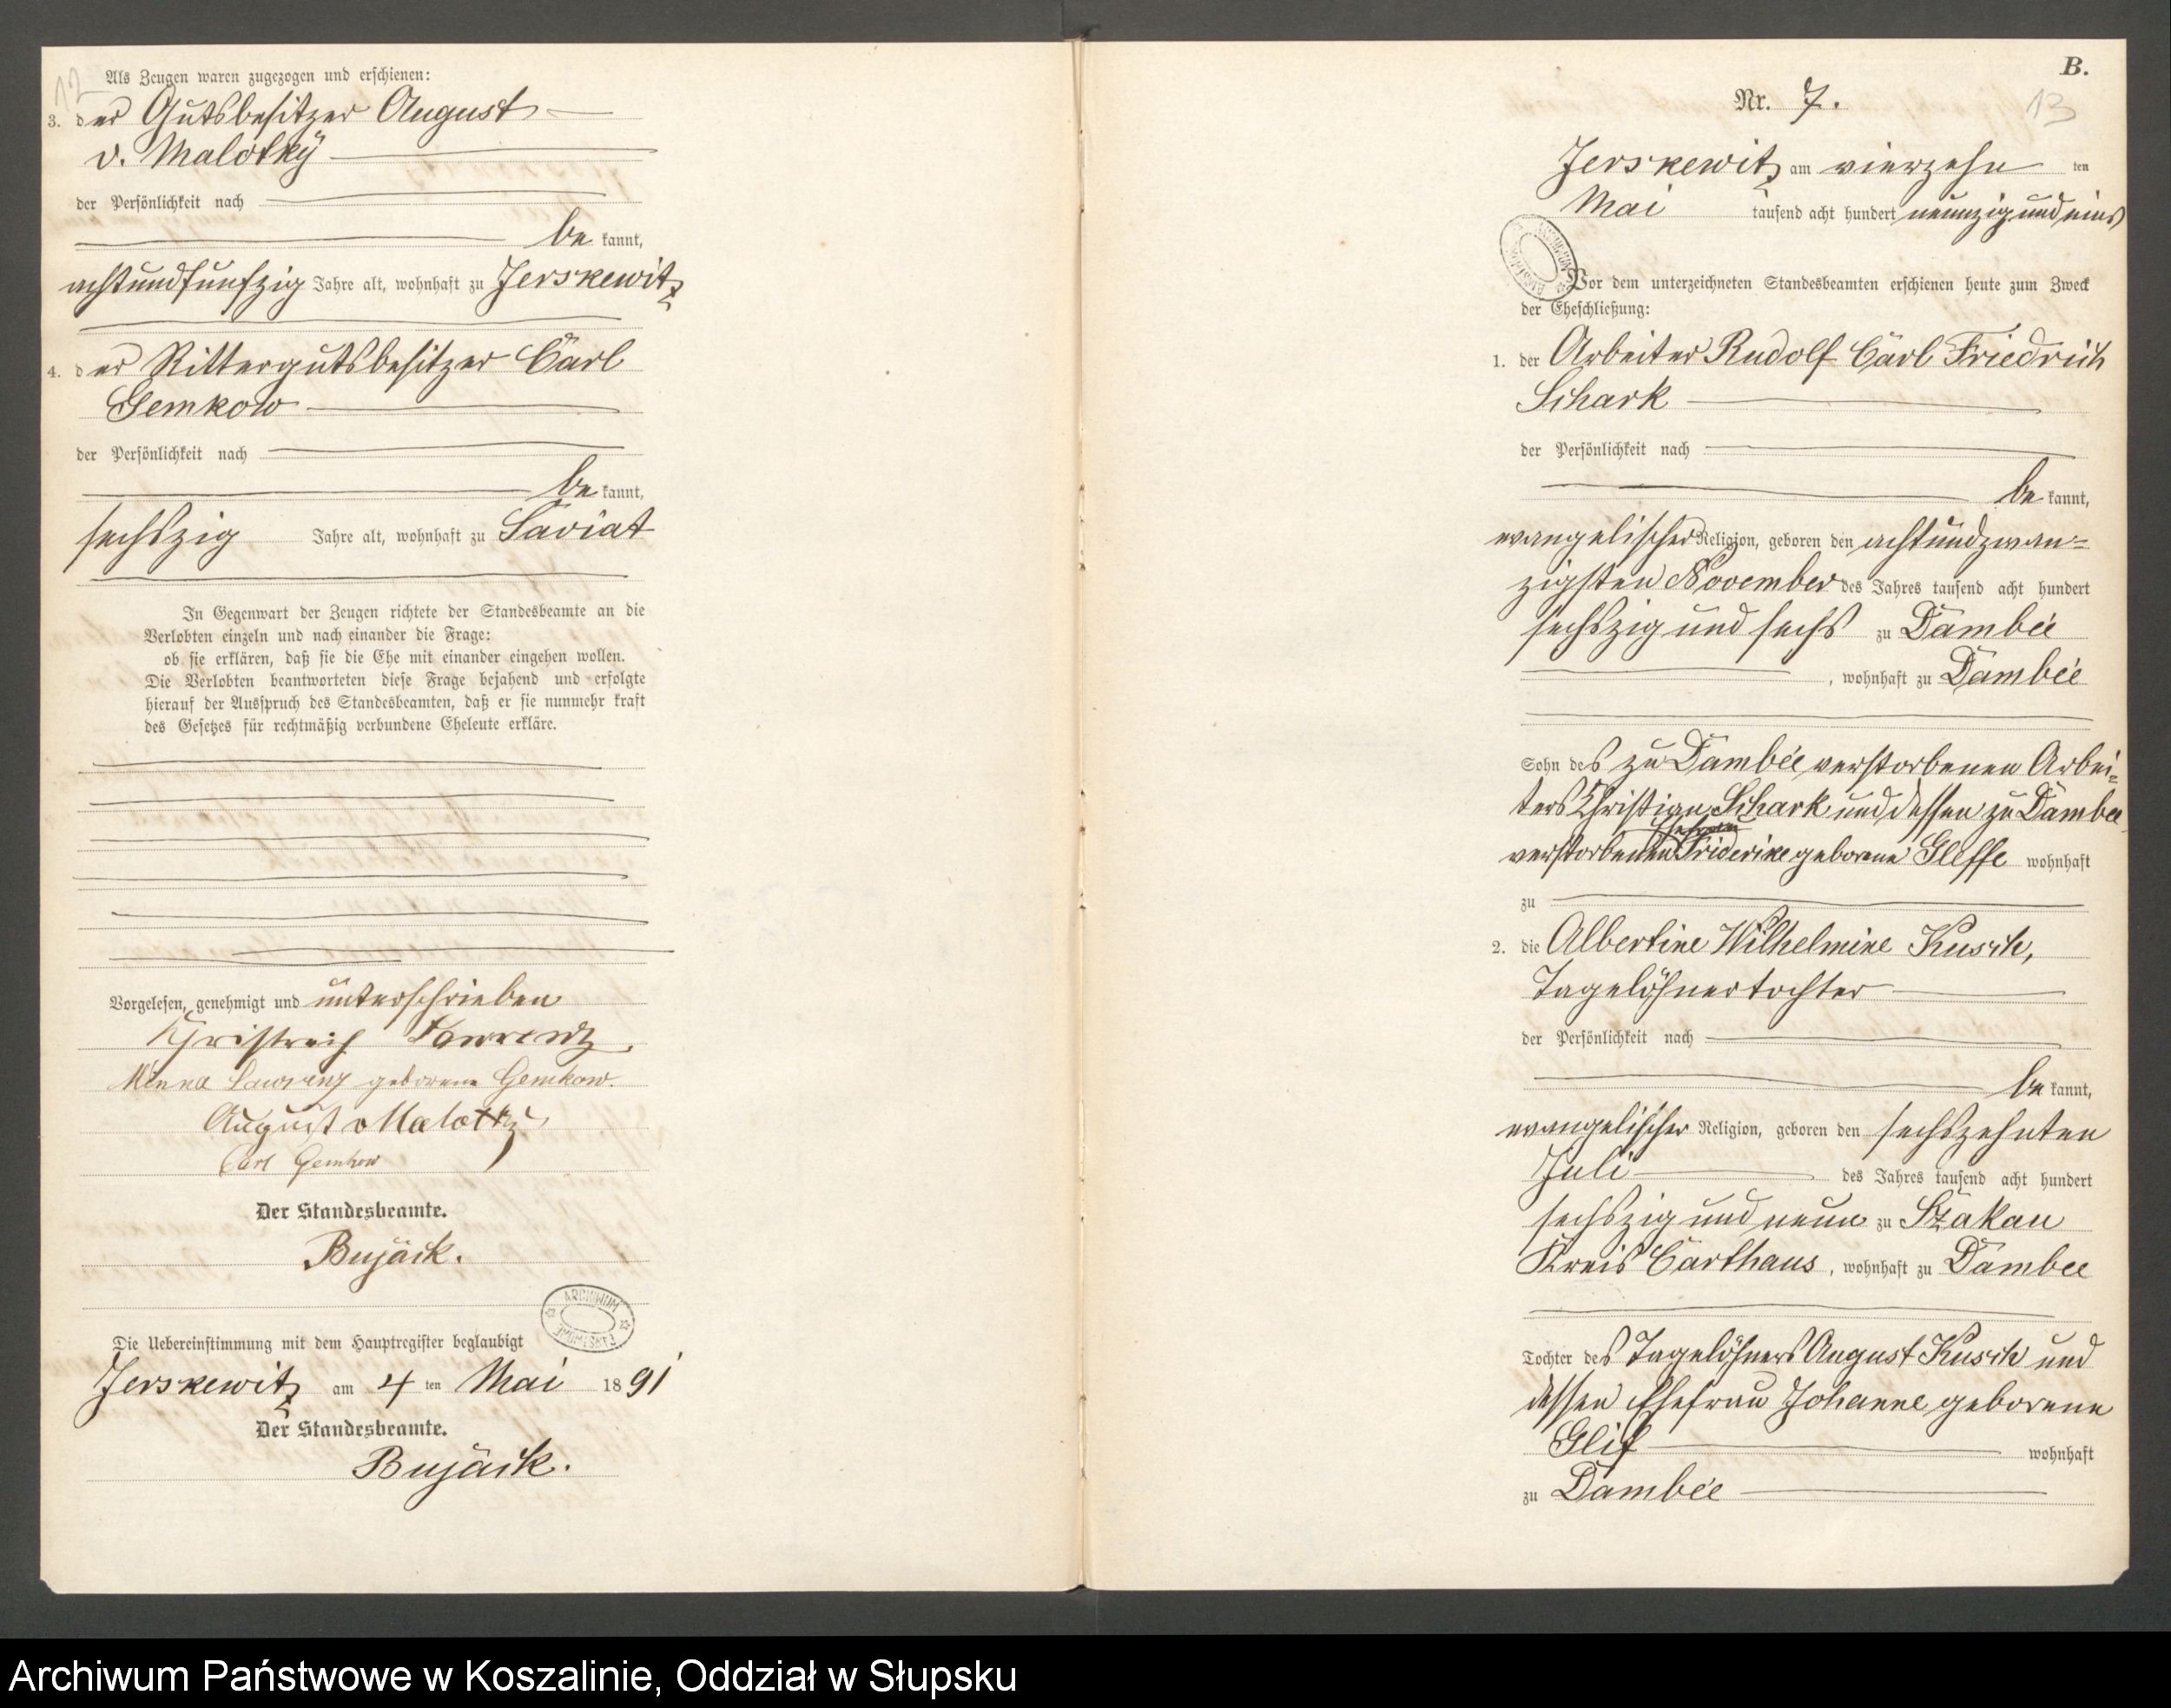 12
Als Zeugen waren zugezogen und erschienen:
3. der Gutsbesitzer August
v. Malotky
der Persönlichkeit nach
be kannt,
achtundfunfzig Jahre alt, wohnhaft zu Jerskewitz
4. der Rittergutsbesitzer Carl
Gemkow
der Persönlichkeit nach
be kannt,
sechszig Jahre alt, wohnhaft zu Saviat
In Gegenwart der Zeugen richtete der Standesbeamte an die
Verlobten einzeln und nach einander die Frage:
ob sie erklären, daß sie die Ehe mit einander eingehen wollen.
Die Verlobten beantworteten diese Frage bejahend und erfolgte
hierauf der Ausspruch des Standesbeamten, daß er sie nunmehr kraft
des Gesetzes für rechtmäßig verbundene Eheleute erkläre.
Vorgelesen, genehmigt und unterschrieben
Minna Lawrenz geborene Gemkow.
August v Malottky
Carl Gemkow
Der Standesbeamte.
Bujäck.
ARCHIWUM PAŃSTWOWE
Die Uebereinstimmung mit dem Hauptregister beglaubigt
Jerskewitz am 4 ten Mai 18 91
Der Standesbeamte.
Bujäck.
B.
Nr. 7.
13
Jerskewitz am vierzehn ten
Mai tausend acht hundert neunzig und eins
Vor dem unterzeichneten Standesbeamten erschienen heute zum Zweck
der Eheschließung:
1. der Arbeiter Rudolf Carl Friedrich
Schark
der Persönlichkeit nach
be kannt,
evangelischer Religion, geboren den achtundzwan=
zigsten November des Jahres tausend acht hundert
sechszig und sechs zu Dambée
, wohnhaft zu Dambée
Sohn des zu Dambée verstorbenen Arbei=
ters Christian Schark und dessen zu Dambee
Ehefrau
verstorbenen Friderike geborene Gleffe wohnhaft
zu
2. die Albertine Wilhelmine Kusch,
Tagelöhnertochter
der Persönlichkeit nach
be kannt,
evangelischer Religion, geboren den sechszehnten
Juli des Jahres tausend acht hundert
sechszig und neun zu Szakau
Kreis Carthaus, wohnhaft zu Dambee
Tochter des Tagelöhners August Kusch und
dessen Ehefrau Johanne geborene
Glif wohnhaft
zu Dambée
Archiwum Państwowe w Koszalinie, Oddział w Słupsku